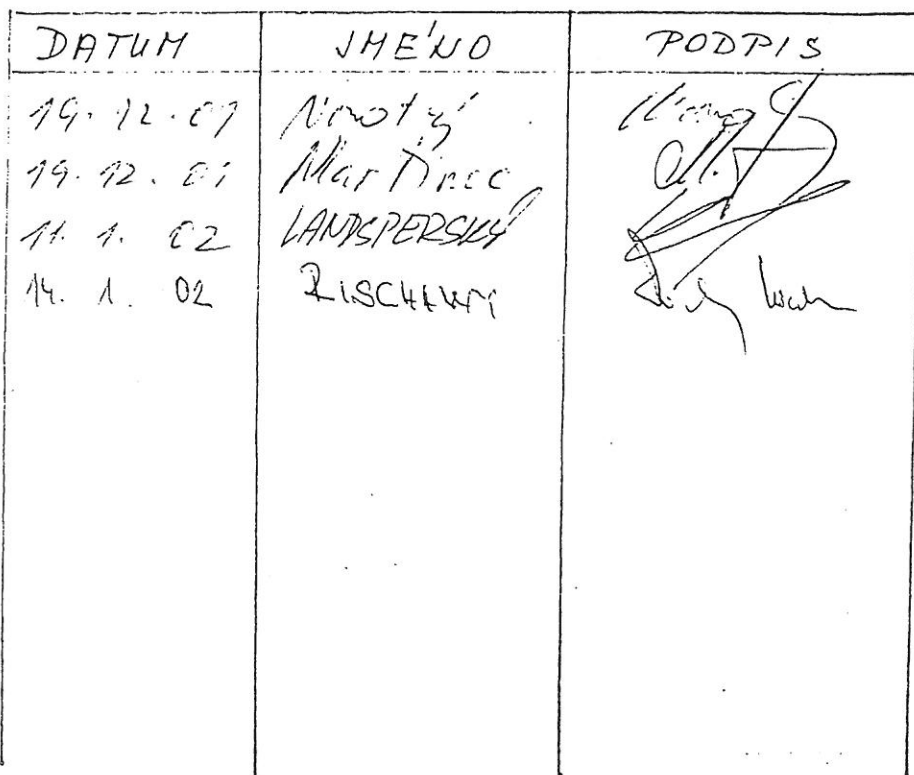 DATUM JMÉNO PODPIS
19. 12. 01 Novotný
19. 12. 01 Martinec
11. 1. 02 LANDSPERSKÝ
14. 1. 02